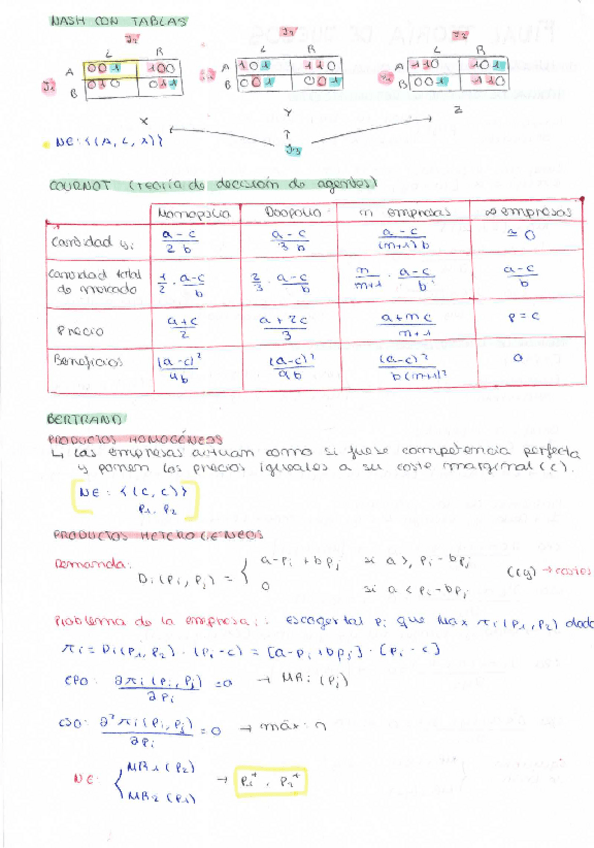 NASH CON TABLAS
J2 J2 J2
L R L R L R
A 001 100 A 101 110 A 110 101
J1 J1 J1
B 010 011 B 011 100 B 001 110
X Y Z
NE: {(A, L, X)}
J3
COURNOT (teoría de decisión de agentes)
Monopolio Duopolio m empresas ∞ empresas
Cantidad qi a-c/2b a-c/3b a-c/(m+1)b ≃ 0
Cantidad total de mercado 1/2 · a-c/b 2/3 · a-c/b m/m+1 · a-c/b a-c/b
Precio a+c/2 a+2c/3 a+mc/m+1 P = c
Beneficios (a-c)²/4b (a-c)²/9b (a-c)²/b(m+1)² 0
BERTRAND
PRODUCTOS HOMOGÉNEOS
↳ Las empresas actuan como si fuese competencia perfecta
y ponen los precios iguales a su coste marginal (c).
NE: {(c, c)}
P1, P2
PRODUCTOS HETEROGÉNEOS
Demanda: Di(Pi, Pj) = { a-Pi+bPj si a ≥ Pi-bPj
0 si a < Pi-bPj
C(q) → costes
Problema de la empresa: escoger tal Pi que Max πi(P1, P2) dado
πi = Di(P1, P2) · (Pi-c) = [a-Pi+bPj] · [Pi-c]
CPO: ∂πi(Pi, Pj)/∂Pi = 0 → MRi(Pj)
CSO: ∂²πi(Pi, Pj)/∂Pi = 0 → máx: n
NE: { MR1(P2)
MR2(P1) → P1*, P2*